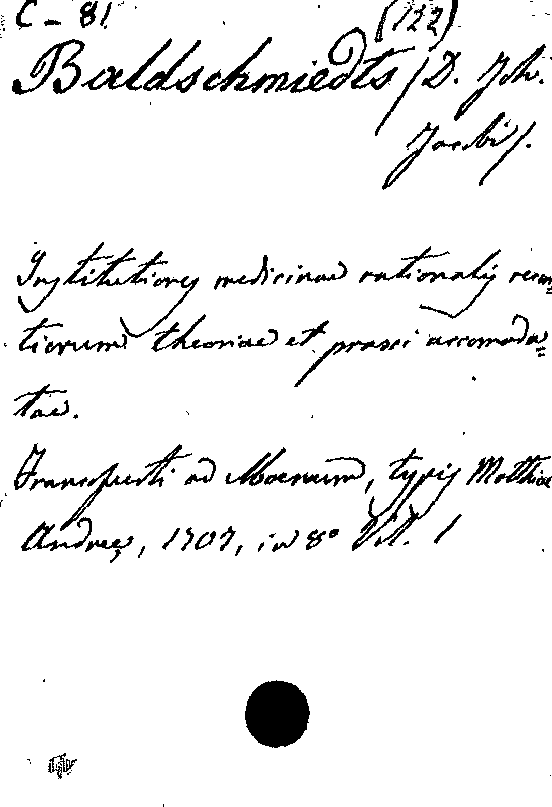 C - 81 (122)
Baldschmiedts /D. Joh.
Jacobi/.
Institutiones medicinae rationalis recen=
tiorum theoriae et praxi accomoda=
tae.
Francofurti ad Moenum, typis Matthiae
Andreę, 1707, in 8° Vol. 1